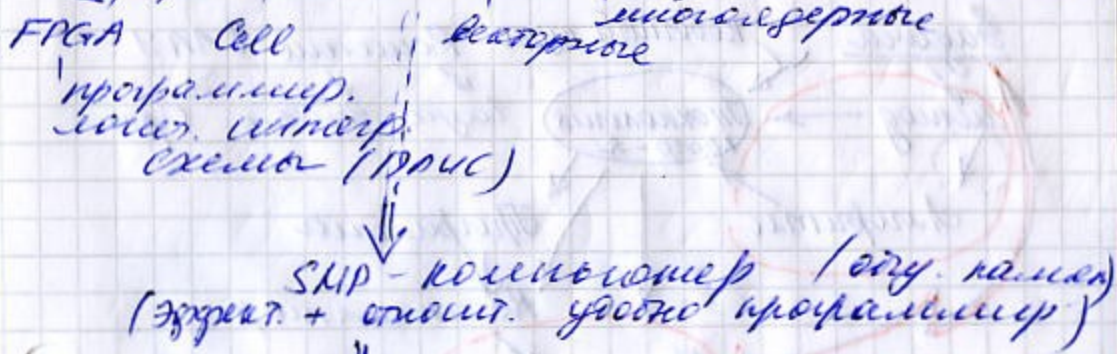 FPGA Cell векторные многоядерные
программир.
логич. интегр.
схемы (ПЛИС)
SMP - компьютер (общ. память)
(эффект. + относит. удобно программир)